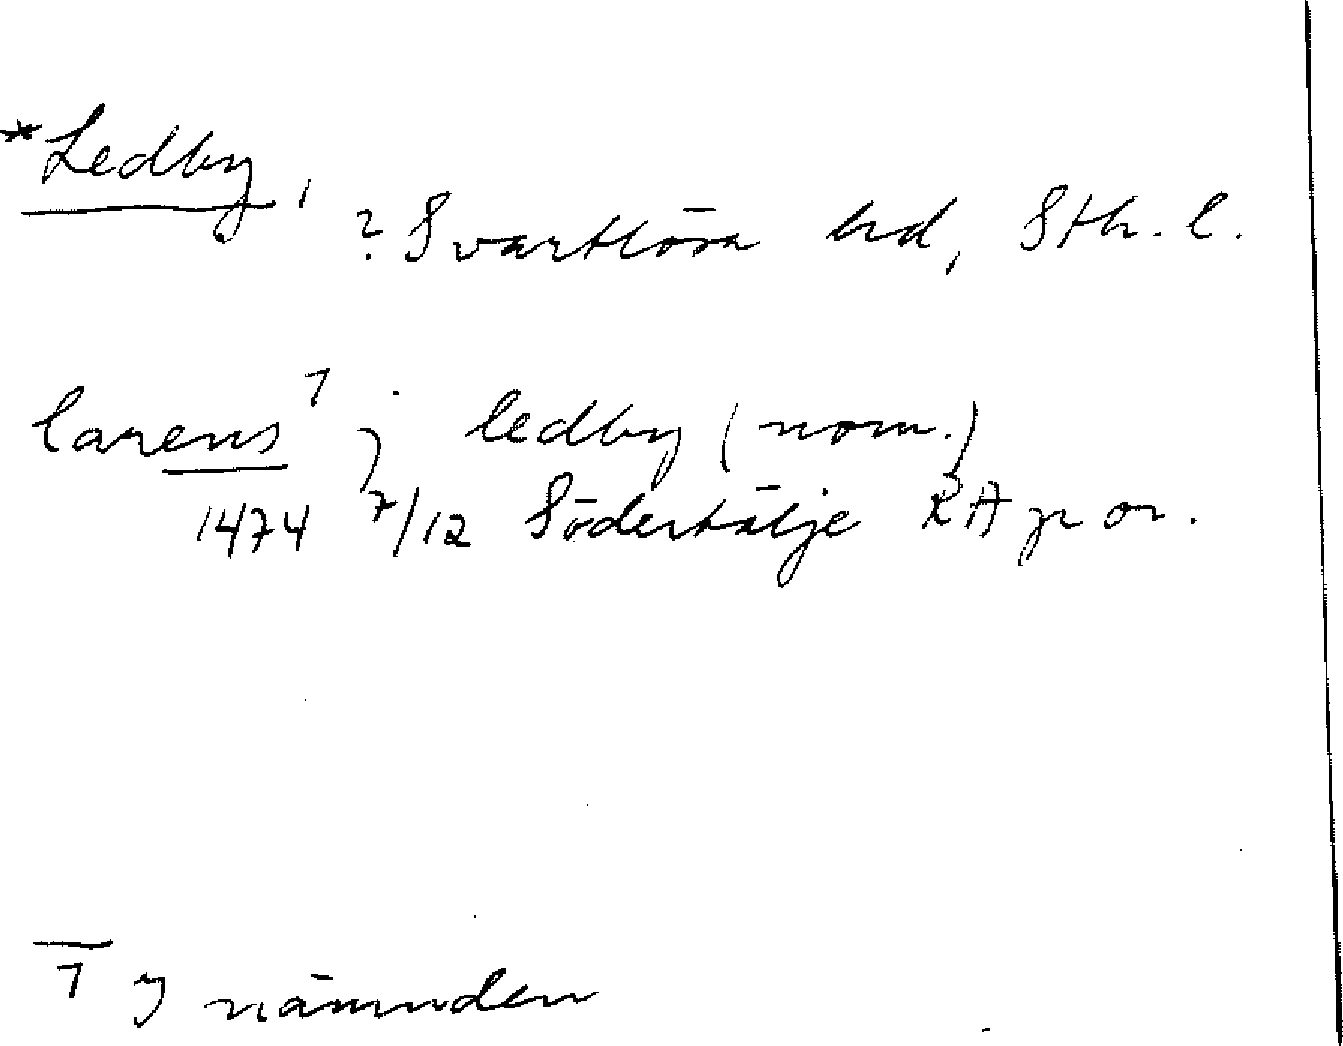 *Ledby,
? Svartlösa hd, Sth. l.
larens 1 j ledby (nom.)
1474 7/12 Södertälje RA p or.
1 j nämnden